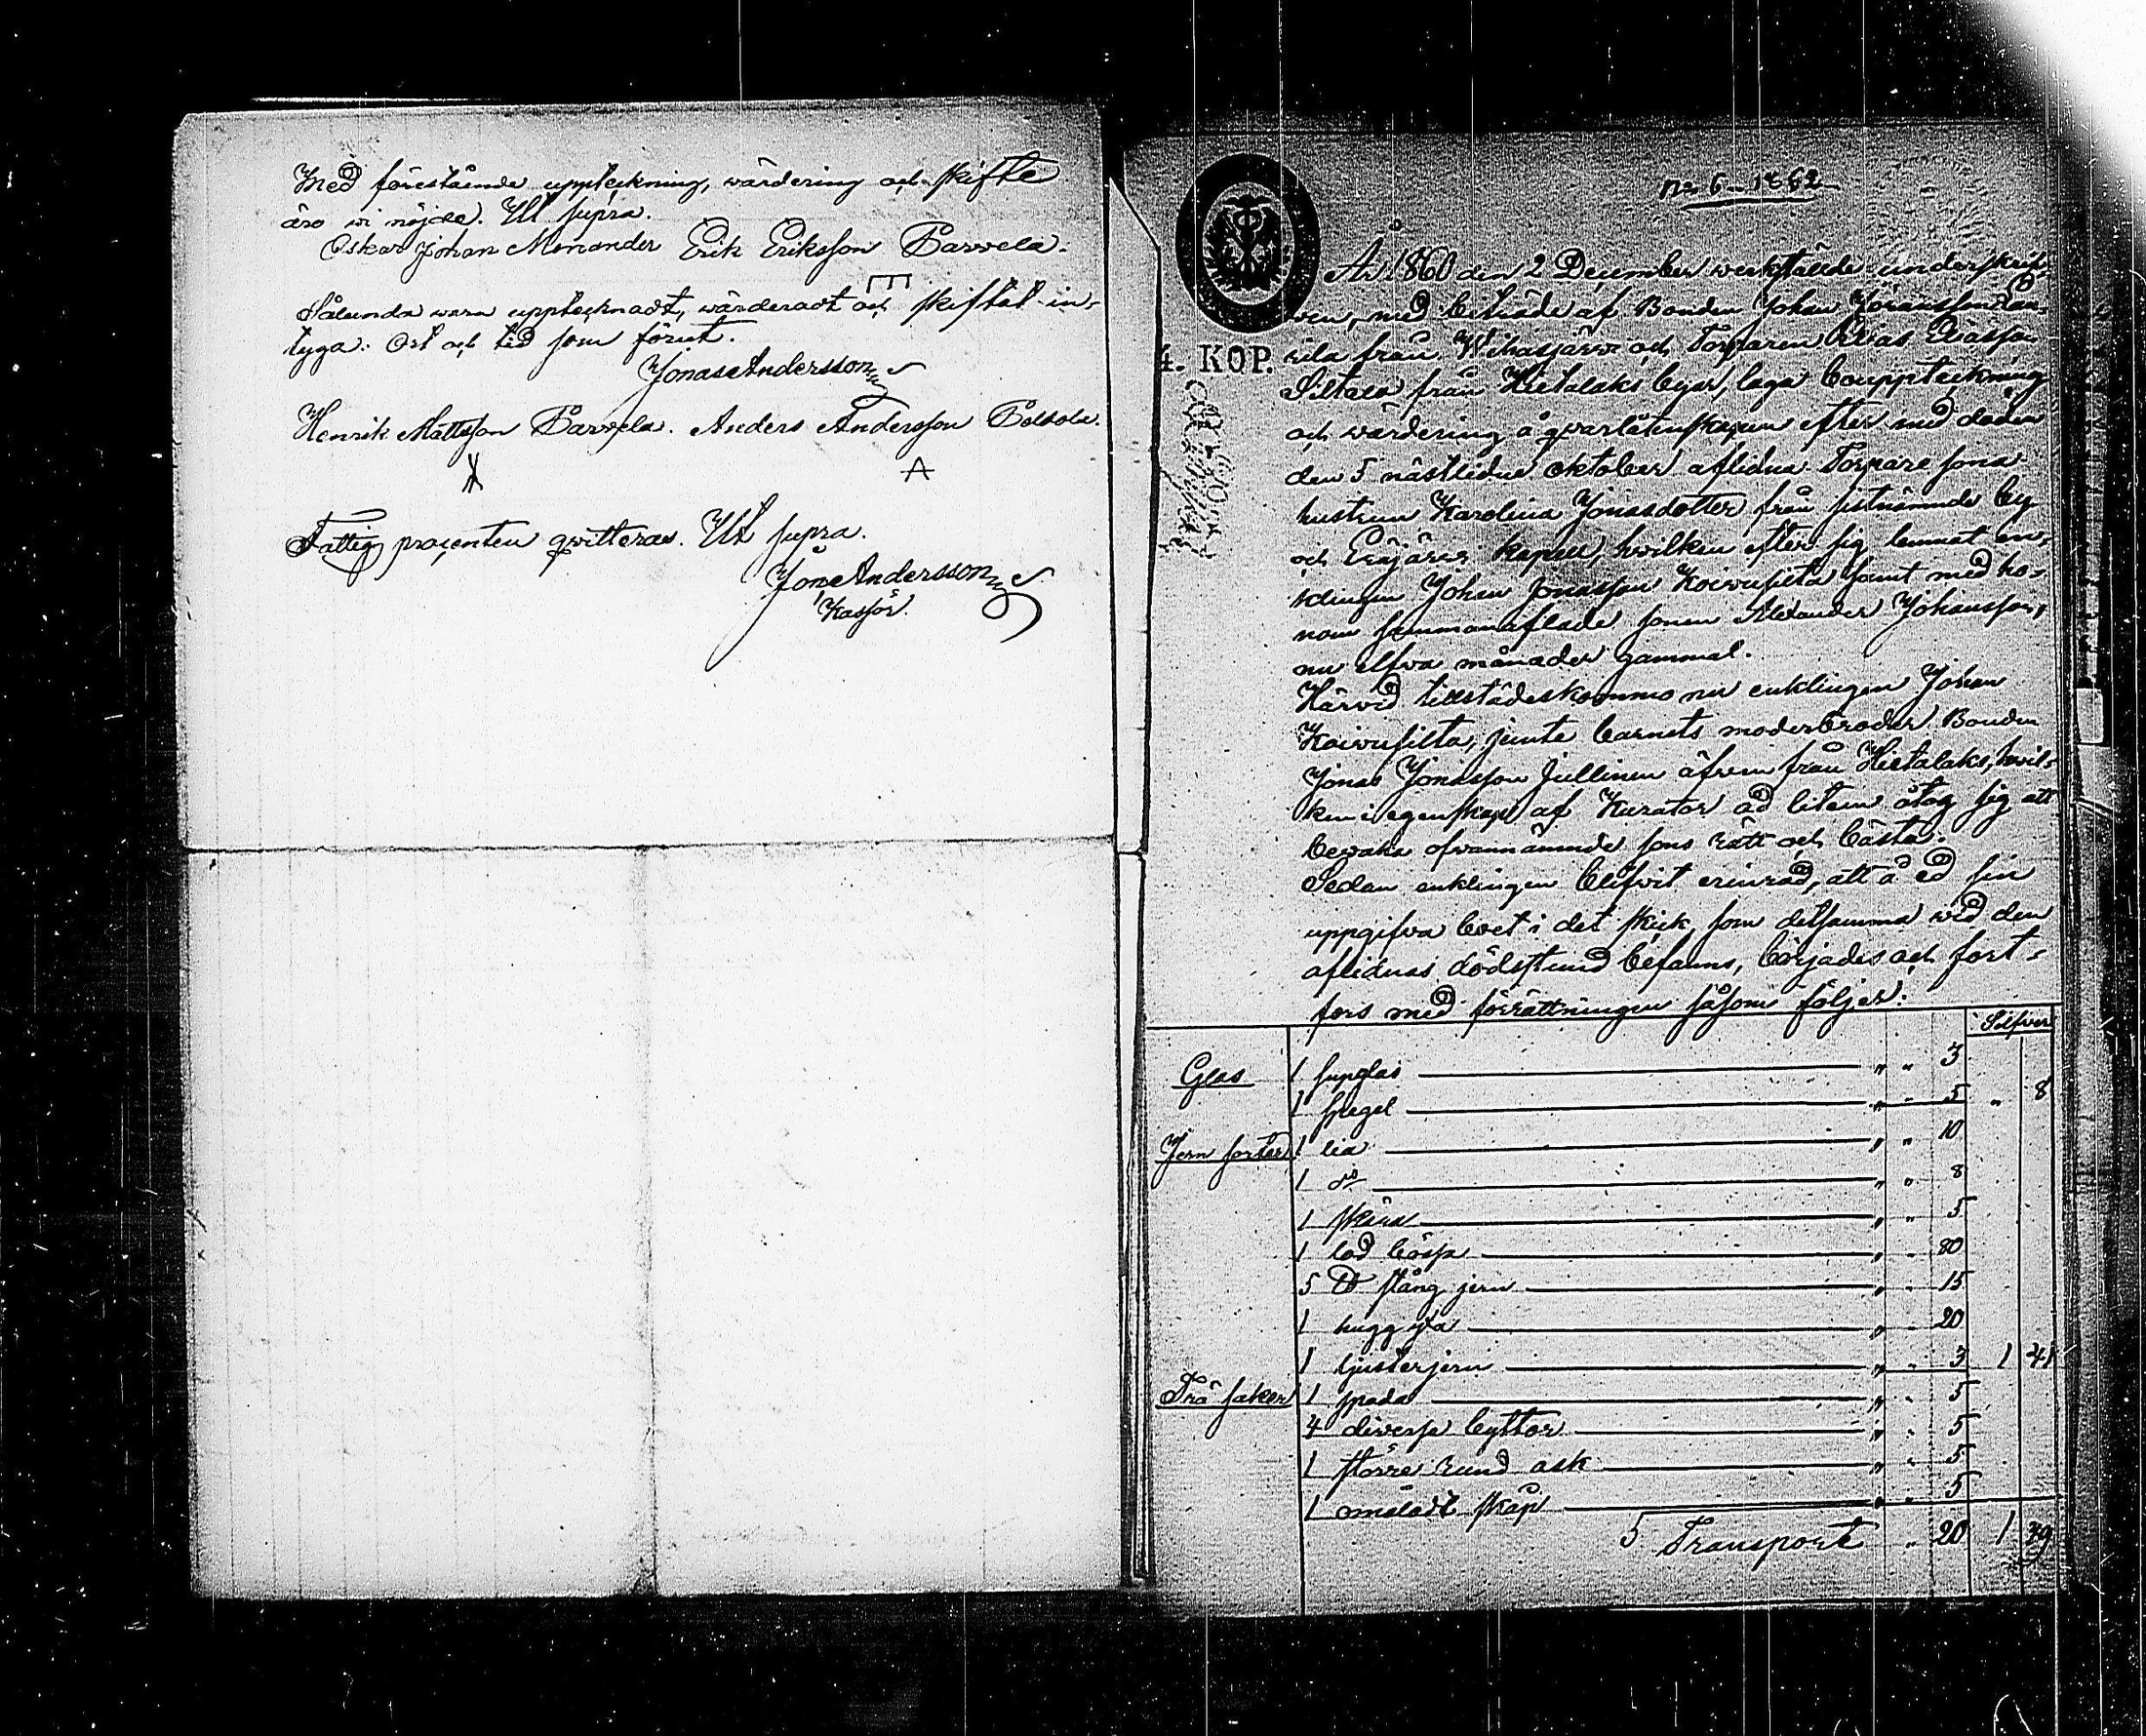 Med förestående uppteckning, wärdering och skifte
äro wi nöjde. Ut supra.
Oskar Johan Menander Erik Eriksson Parvela.
Sålunda wara upptecknadt, wärderadt och skiftat in-
tyga: Ort och tid som förut.
Jonas Andersson
Henrik Mattsson Parvela. Anders Andersson
Fattig procenten qwitteras. Ut supra.
Jonas Andersson
Kassör.
No 6 - 1862
År 1860 den 2 December werkställde underskrif-
wen, med biträde af Bonden Johan Johansson
rila från Wihasjärvi och Torparen Elias Eliasson
4. KOP.
Siltala från Hietalaks byar, laga bouppteckning
och wärdering å qwarlåtenskapen efter med döden
den 5 nästledne Oktober aflidna Torpare sona
hustrun Karolina Jonasdotter från sistnämnde by
och Eräjärvi kapell, hwilken efter sig lemnat en-
klingen Johan Jonasson Koiwusilta samt med ho-
nom sammanaflade sonen Alexander Johansson,
nu elfwa månader gammal.
Härwid tillstädeskommo nu enklingen Johan
Koiwusilta, jemte barnets moderbroder Bonden
Jonas Jonasson Jullinen äfwen från Hietalaks, hwil-
ken i egenskap af Kurator ad litem åtog sig att
bewaka ofwannämnde sons rätt och bästa.
Sedan enklingen blifwit erinrad, att å ed sin
uppgifwa boet i det skick, som detsamma wid den
aflidnas dödsstund befanns, börjades och fort-
fors med förrättningen såsom följer:
Silfver
Glas 1 supglas " " 3
1 spegel " " 5 " 8
Jern sorter 1 lia " " 10
1 do " " 8
1 skära " " 5
1 lod bössa " " 80
5 ℔ stång jern " " 15
1 hugg yxa " " 20
1 ljusterjern " " 3 1 41
Trä saker 1 spada " " 5
4 diverse byttor " " 5
1 större rund ask " " 5
1 omåladt skåp " " 5
Transport " 20 1 49